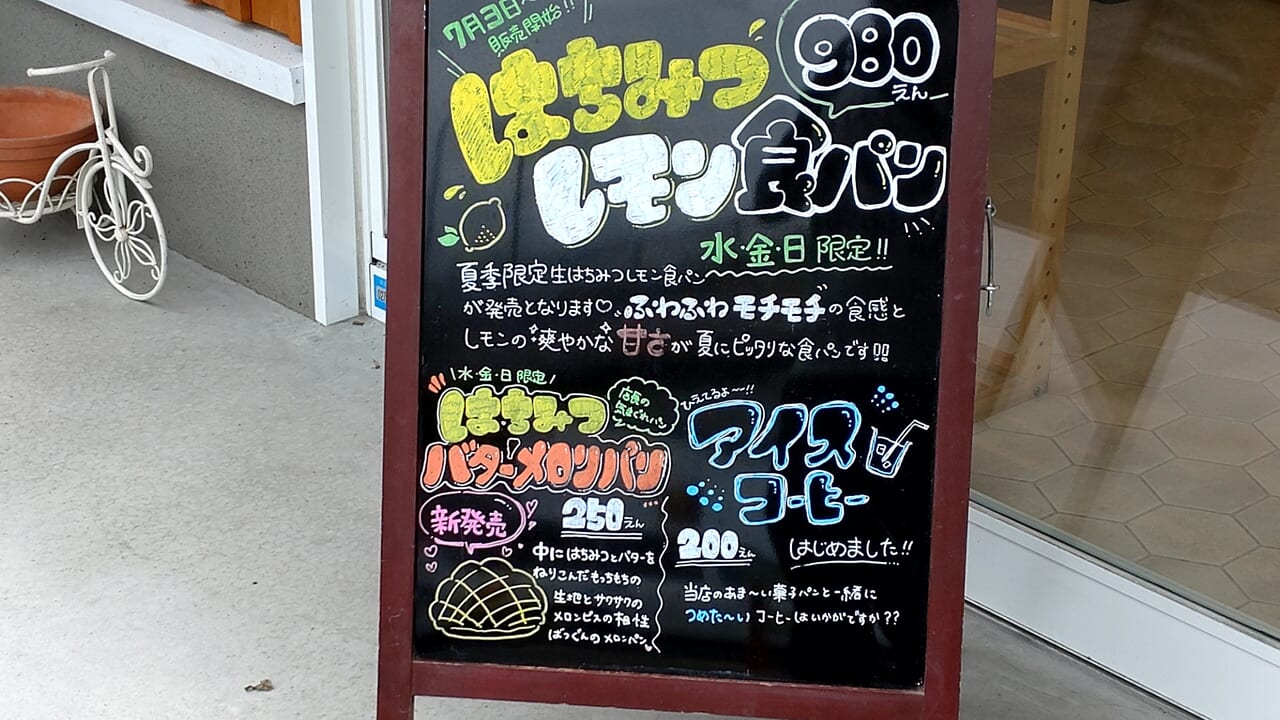 7月3日~
販売開始!!
はちみつ
レモン食パン
980
えん
水・金・日 限定!!
夏季限定生はちみつレモン食パン
が発売となります♡、ふわふわモチモチの食感と
レモンの爽やかな甘さが夏にピッタリな食パンです!!
\水・金・日 限定/
はちみつ
店長の
気まぐれパン
バターメロンパン
新発売
250えん
中にはちみつとバターを
ねりこんだもっちもちの
生地とサクサクの
メロンビスの相性
ばつぐんのメロンパン♥
ひえてるよ~~!!
アイス
コーヒー
200えん
はじめました!!
当店のあま~い菓子パンと一緒に
つめた~い コーヒーはいかがですか??